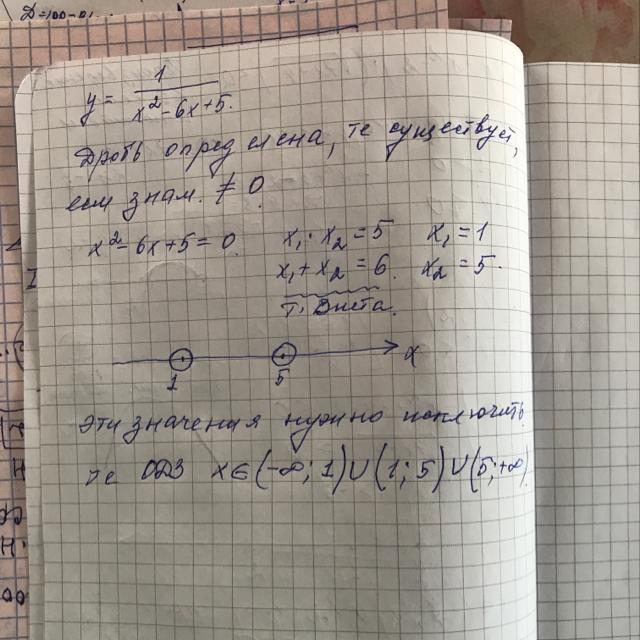 D=100-
y = 1 / x² - 6x + 5.
Дробь определена, те существует,
если знам. ≠ 0.
x² - 6x + 5 = 0. x₁ · x₂ = 5 x₁ = 1
x₁ + x₂ = 6. x₂ = 5.
Т. Виета.
1 5 x
Эти значения нужно исключить
те ОДЗ x ∈ (-∞; 1) ∪ (1; 5) ∪ (5; +∞)